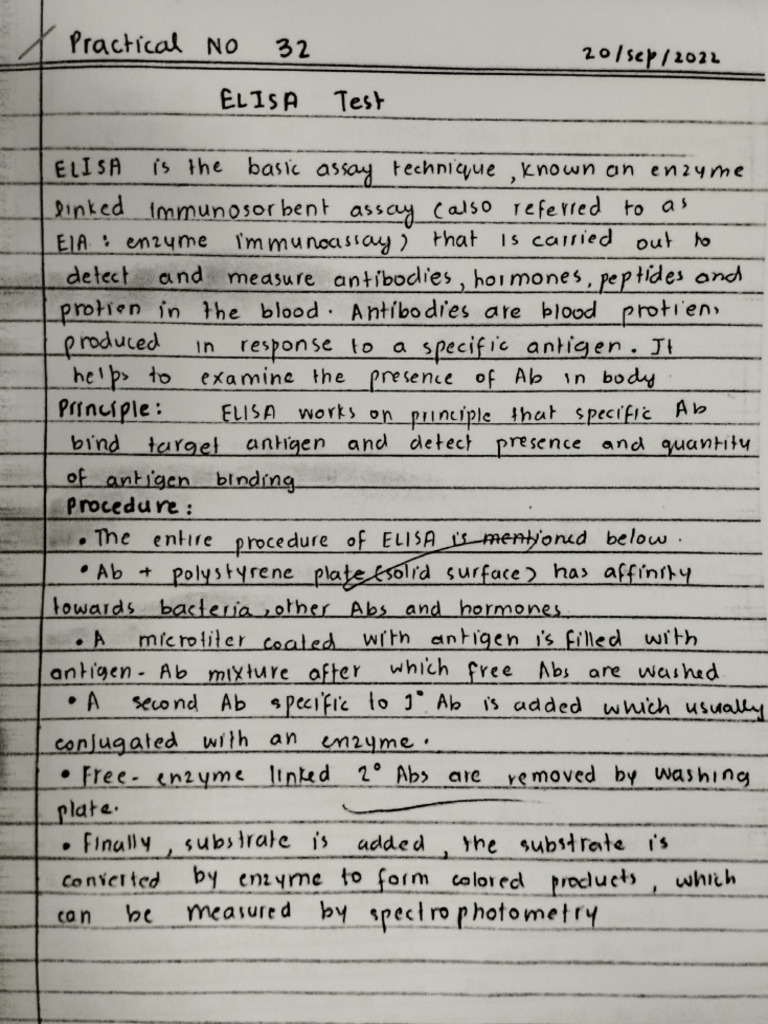 Practical NO 32
20/Sep/2022
ELISA Test
ELISA is the basic assay technique, known an enzyme
linked immunosorbent assay (also referred to as
EIA : enzyme immunoassay) that is carried out to
detect and measure antibodies, hormones, peptides and
protien in the blood. Antibodies are blood protiens
produced in response to a specific antigen. It
helps to examine the presence of Ab in body
Principle: ELISA works on principle that specific Ab
bind target antigen and detect presence and quantity
of antigen binding
Procedure:
• The entire procedure of ELISA is mentioned below.
• Ab + polystyrene plate (solid surface) has affinity
towards bacteria, other Abs and hormones
• A microtiter coated with antigen is filled with
antigen - Ab mixture after which free Abs are washed
• A second Ab specific to 1° Ab is added which usually
conjugated with an enzyme.
• Free- enzyme linked 2° Abs are removed by washing
plate.
• Finally, substrate is added, the substrate is
converted by enzyme to form colored products, which
can be measured by spectrophotometry